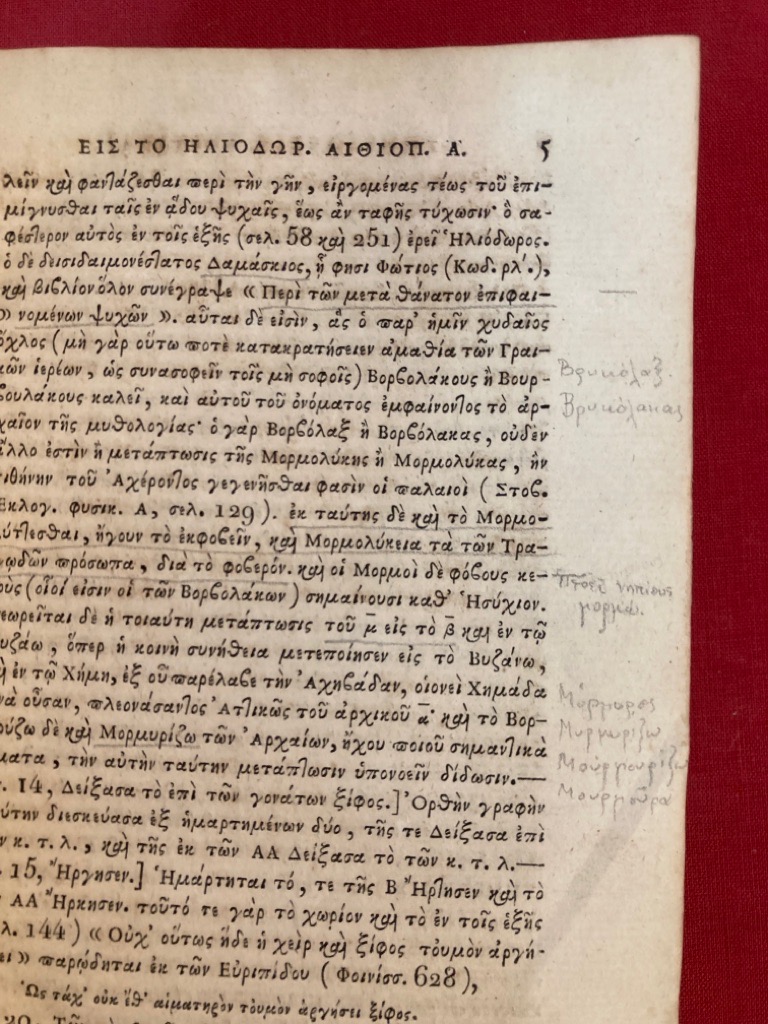 ΕΙΣ ΤΟ ΗΛΙΟΔΩΡ. ΑΙΘΙΟΠ. Α. 5
λεῖν καὶ φαντάζεσθαι περὶ τὴν γῆν, εἰργομένας τέως τοῦ ἐπι-
μίγνυσθαι ταῖς ἐν ᾅδου ψυχαῖς, ἕως ἂν ταφῆς τύχωσιν· ὃ σα-
φέστερον αὐτὸς ἐν τοῖς ἑξῆς (σελ. 58 καὶ 251) ἐρεῖ Ἡλιόδωρος.
ὁ δὲ δεισιδαιμονέστατος Δαμάσκιος, ᾗ φησι Φώτιος (Κωδ. ρλ´.),
καὶ βιβλίον ὅλον συνέγραψε « Περὶ τῶν μετὰ θάνατον ἐπιφαι-
» νομένων ψυχῶν ». αὗται δὲ εἰσὶν, ἃς ὁ παρ' ἡμῖν χυδαῖος
ὄχλος (μὴ γὰρ οὕτω ποτὲ κατακρατήσειεν ἀμαθία τῶν Γραι-
κῶν ἱερέων, ὡς συνασοφεῖν τοῖς μὴ σοφοῖς) Βορβολάκους ἢ Βουρ-
βουλάκους καλεῖ, καὶ αὐτοῦ τοῦ ὀνόματος ἐμφαίνοντος τὸ ἀρ-
χαῖον τῆς μυθολογίας· ὁ γὰρ Βορβόλαξ ἢ Βορβόλακας, οὐδὲν
ἄλλο ἐστὶν ἢ μετάπτωσις τῆς Μορμολύκης ἢ Μορμολύκας, ἣν
τιθήνην τοῦ Ἀχέροντος γεγενῆσθαι φασὶν οἱ παλαιοὶ (Στοβ.
Ἐκλογ. φυσικ. Α, σελ. 129). ἐκ ταύτης δὲ καὶ τὸ Μορμο-
λύττεσθαι, ἤγουν τὸ ἐκφοβεῖν, καὶ Μορμολύκεια τὰ τῶν Τρα-
γῳδῶν πρόσωπα, διὰ τὸ φοβερόν. καὶ οἱ Μορμοὶ δὲ φόβους κε-
νοὺς (οἷοί εἰσιν οἱ τῶν Βορβολάκων) σημαίνουσι καθ' Ἡσύχιον.
θεωρεῖται δὲ ἡ τοιαύτη μετάπτωσις τοῦ μ̄ εἰς τὸ β̄ καὶ ἐν τῷ
Μυζάω, ὅπερ ἡ κοινὴ συνήθεια μετεποίησεν εἰς τὸ Βυζάνω,
καὶ ἐν τῷ Χήμη, ἐξ οὗ παρέλαβε τὴν Ἀχηβάδαν, οἱονεὶ Χημάδα
τινὰ οὖσαν, πλεονάσαντος Ἀττικῶς τοῦ ἀρχικοῦ ᾱ· καὶ τὸ Βορ-
βορύζω δὲ καὶ Μορμυρίζω τῶν Ἀρχαίων, ἤχου ποιοῦ σημαντικὰ
ῥήματα, τὴν αὐτὴν ταύτην μετάπτωσιν ὑπονοεῖν δίδωσιν.—
. 14, Δείξασα τὸ ἐπὶ τῶν γονάτων ξίφος.] Ὀρθὴν γραφὴν
ταύτην διεσκεύασα ἐξ ἡμαρτημένων δύο, τῆς τε Δείξασα ἐπὶ
τῶν κ. τ. λ., καὶ τῆς ἐκ τῶν ΑΑ Δείξασα τὸ τῶν κ. τ. λ.—
. 15, Ἤργησεν.] Ἡμάρτηται τό, τε τῆς Β Ἤρτησεν καὶ τὸ
ΑΑ Ἤρκησεν. τοῦτό τε γὰρ τὸ χωρίον καὶ τὸ ἐν τοῖς ἑξῆς
λ. 144) « Οὐχ' οὕτως ἥδε ἡ χεὶρ καὶ ξίφος τοὐμὸν ἀργή-
ει » παρῴδηται ἐκ τῶν Εὐριπίδου (Φοινίσσ. 628),
Ὡς τάχ' οὐκ ἔθ' αἱματηρὸν τοὐμὸν ἀργήσει ξίφος.
Βρυκόλαξ.
Βρυκόλακας
νηπίους
μορμώ.
Μόρμυρος
Μυρμυρίζω
Μουρμουρίζω
Μουρμοῦρα